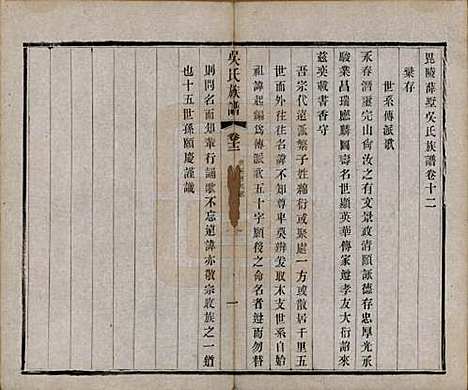 毘陵薛墅吳氏族譜卷十二
彙存
世系傳派歌
永春濟靈完山尚汝之有文景政清頤詠德存忠厚光承
駿業昌瑞應麟圖壽名世顯英華傳家迪孝友大衍詒來
茲奕載書香守
吾宗代遠派繁子姓綿衍或聚處一方或散居千里五
世而外往往名諱不知尊卑莫辨爰取本支世系自始
祖諱起編爲傳派歌五十字願後之命名者迪而勿替
則問名而知輩行誦歌不忘遠諱亦敬宗收族之一道
也十五世孫頤慶謹識
吳氏族譜
卷十二
一